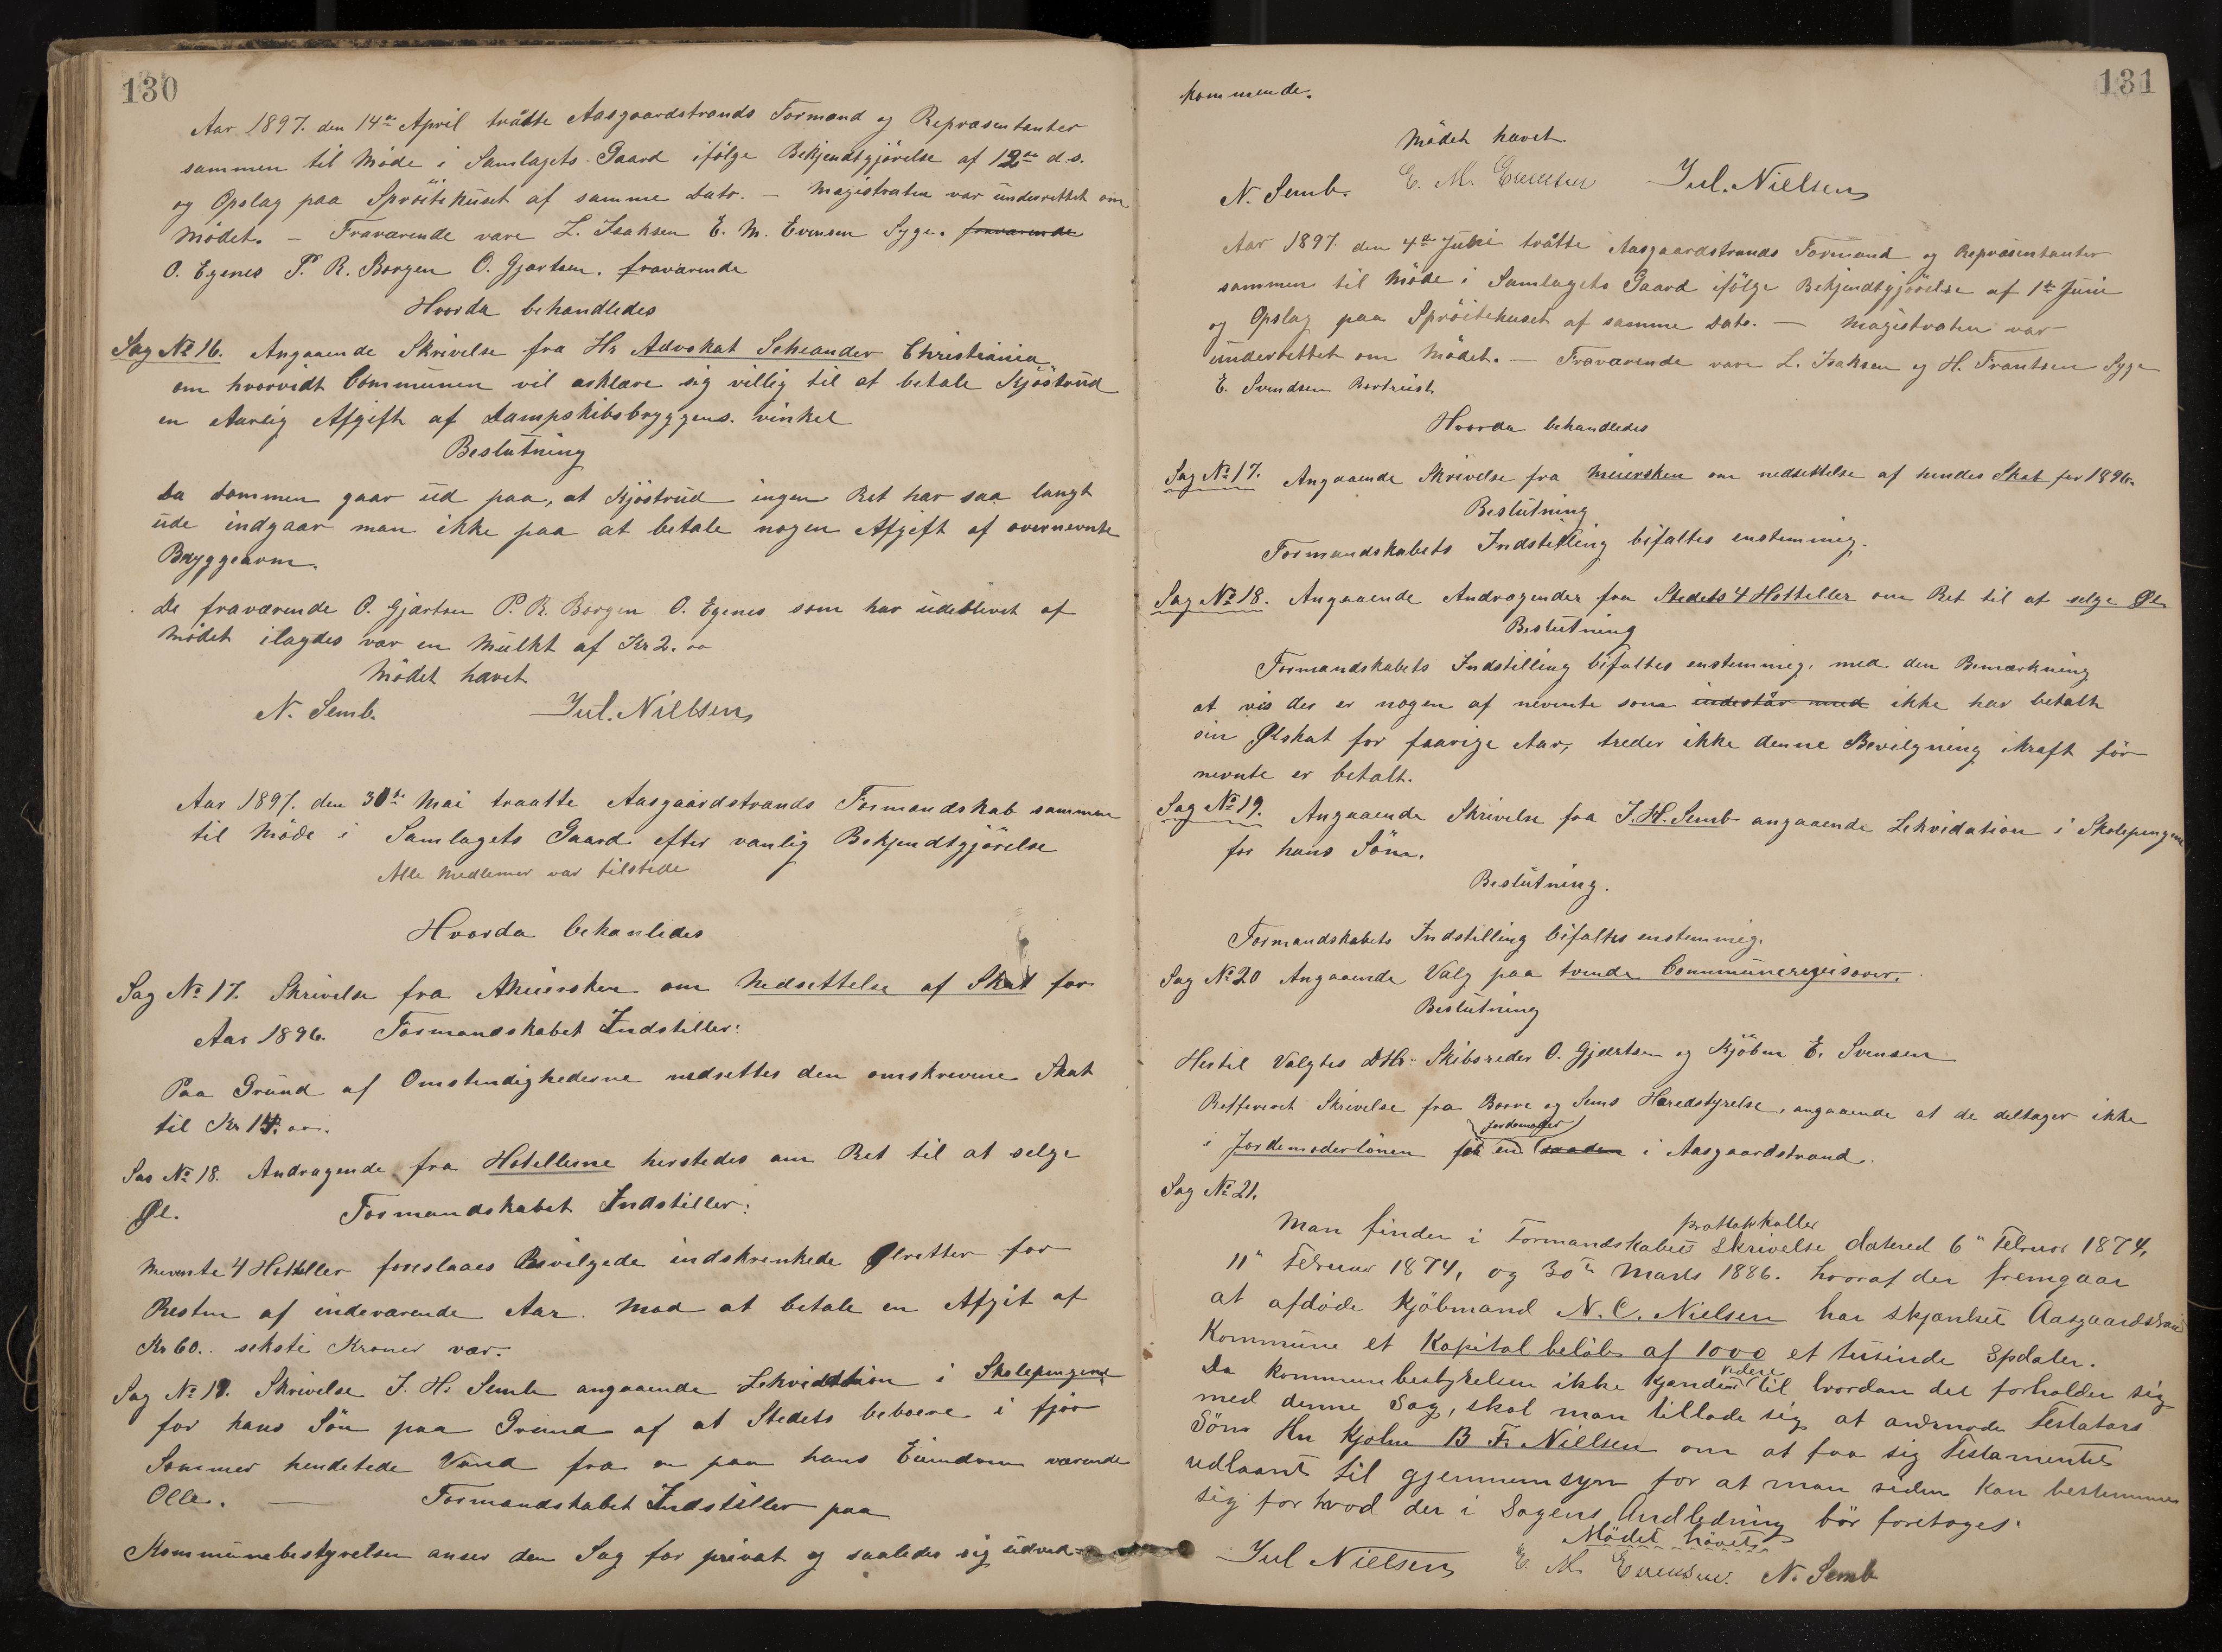 130
Aar 1897. den 14de April trådte Aasgaardstrands Formand og Repræsentanter
sammen til Møde i Samlagets Gaard ifølge Bekjendtgjörelse af 12te d.s.
og Opslag paa Spröitehuset af samme Dato. — Magistraten var underrettet om
Mödet. — Fraværende vare L. Isaksen E. M. Evensen Syge. fraværende
O. Egenes P. R. Borgen O. Gjertsen. fraværende
Hvorda behandledes
Sag No 16. Angaaende Skrivelse fra Hr Advokat Scheander Christiania
om hvorvidt Communen vil erklære sig villig til at betale Kjöstrud
en Aarlig Afgift af Dampskibsbryggens vinkel
Beslutning
Da Dommen gaar ud paa, at Kjöstrud ingen Ret har saa langt
ude indgaar man ikke paa at betale nogen Afgift af overnevnte
Bryggearm.
De fraværende O. Gjærtsen P. R. Borgen O. Egenes som har udeblivet af
Mödet ilagdes vær en Mulkt af Kr 2. oo
Mödet hævet
N. Semb. Jul. Nielsen
Aar 1897. den 31te Mai traatte Aasgaardstrands Formandskab sammen
til Møde i Samlagets Gaard efter vanlig Bekjendtgjörelse
Alle Medlemer var tilstede
Hvorda behanlides
Sag No 17. Skrivelse fra Meiersken om Nedsettelse af Skat for
Aar 1896. Formandskabet Indstiller:
Paa Grund af Omstendighederne nedsettes den omskrevene Skat
til Kr 14. oo.
Sas No 18. Andragende fra Hotellerne herstedes om Ret til at selge
Øl. Formandskabet Indstiller:
Nevente 4 Hotteller foreslaaes Bevilgede indskrenkede Ølretter for
Resten af indeværende Aar. Mod at betale en Afgit af
Kr 60.. seksti Kroner vær.
Sag No 19. Skrivelse J. H. Semb angaaende Lekvidation i Skolepengene
for hans Sön paa Grund af at Stedets beboere i fjor
Sommer hendetede Vand fra en paa hans Eiendom værende
Olle. — Formandskabet Indstiller paa
Kommunebestyrelsen anser den Sag for privat og saaledes sig udved-
131
kommende.
Mödet hævet
N. Semb. E. M. Evensen Jul. Nielsen
Aar 1897. den 4de Juni tråtte Aasgaardstrands Formand og Repræsentanter
sammen til Möde i Samlagets Gaard ifölge Bekjendtgjörelse af 1te Juni
og Opslag paa Spröitehuset af samme Dato. — Magistraten var
underrettet om Mödet. — Fraværende vare L. Isaksen og H. Frantsen Syge
E. Svendsen Bortreist
Hvorda behandledes
Sag No 17. Angaaende Skrivelse fra Meiersken om nedsettelse af hendes Skat for 1896.
Beslutning
Formandskabets Indstilling bifaltes enstemmig.
Sag No 18. Angaaende Andragender fra Stedets 4 Hotteller om Ret til at selge Øl.
Beslutning
Formandskabets Indstilling bifaltes enstemmig. med den Bemærkning
at vis der er nogen af nevnte som indestår med ikke har betalt
sin Ølskat for faarige Aar, treder ikke denne Bevilgning ikraft för
nevnte er betalt.
Sag No 19. Angaaende Skrivelse fra J. H. Semb angaaende Lekvidation i Skolepengene
for hans Söna.
Beslutning.
Formandskabets Indstilling bifaltes enstemmig.
Sag No 20 Angaaende Valg paa tvende Communerevisorer.
Beslutning
Hertil Valgtes DHr. Skibsreder O. Gjærtsen og Kjöbm E. Svensen
Refereret Skrivelse fra Borre og Sems Heredstyrelse, angaaende at de deltager ikke
jordemoder
i Jordemoderlönen for en saaden i Aasgaardstrand.
Sag No 21.
prottokkoller
Man finder i Formandskabets Skrivelse datered 6te Februar 1874,
11te Februar 1874, og 30te Marts 1886. hvoraf der fremgaar
at afdöde Kjöbmand N. C. Nielsen har skjænket Aasgaardstrand
Kommune et Kapital belöb af 1000 et tusinde Spdaler.
videre
Da Kommunbestyrelsen ikke Kjender til hvordan det forholder sig
med denne Sag, skal man tillade sig at anmode Testators
Sön Hr Kjøbm B Fr Nielsen om at faa sig Testamentet
udlaant til gjennemsyn for at man siden Kan bestemme
sig for hvad der i Sagens Andledning bör foretages.
Mödet hävet
Jul Nielsen E. M. Evensen. N. Semb